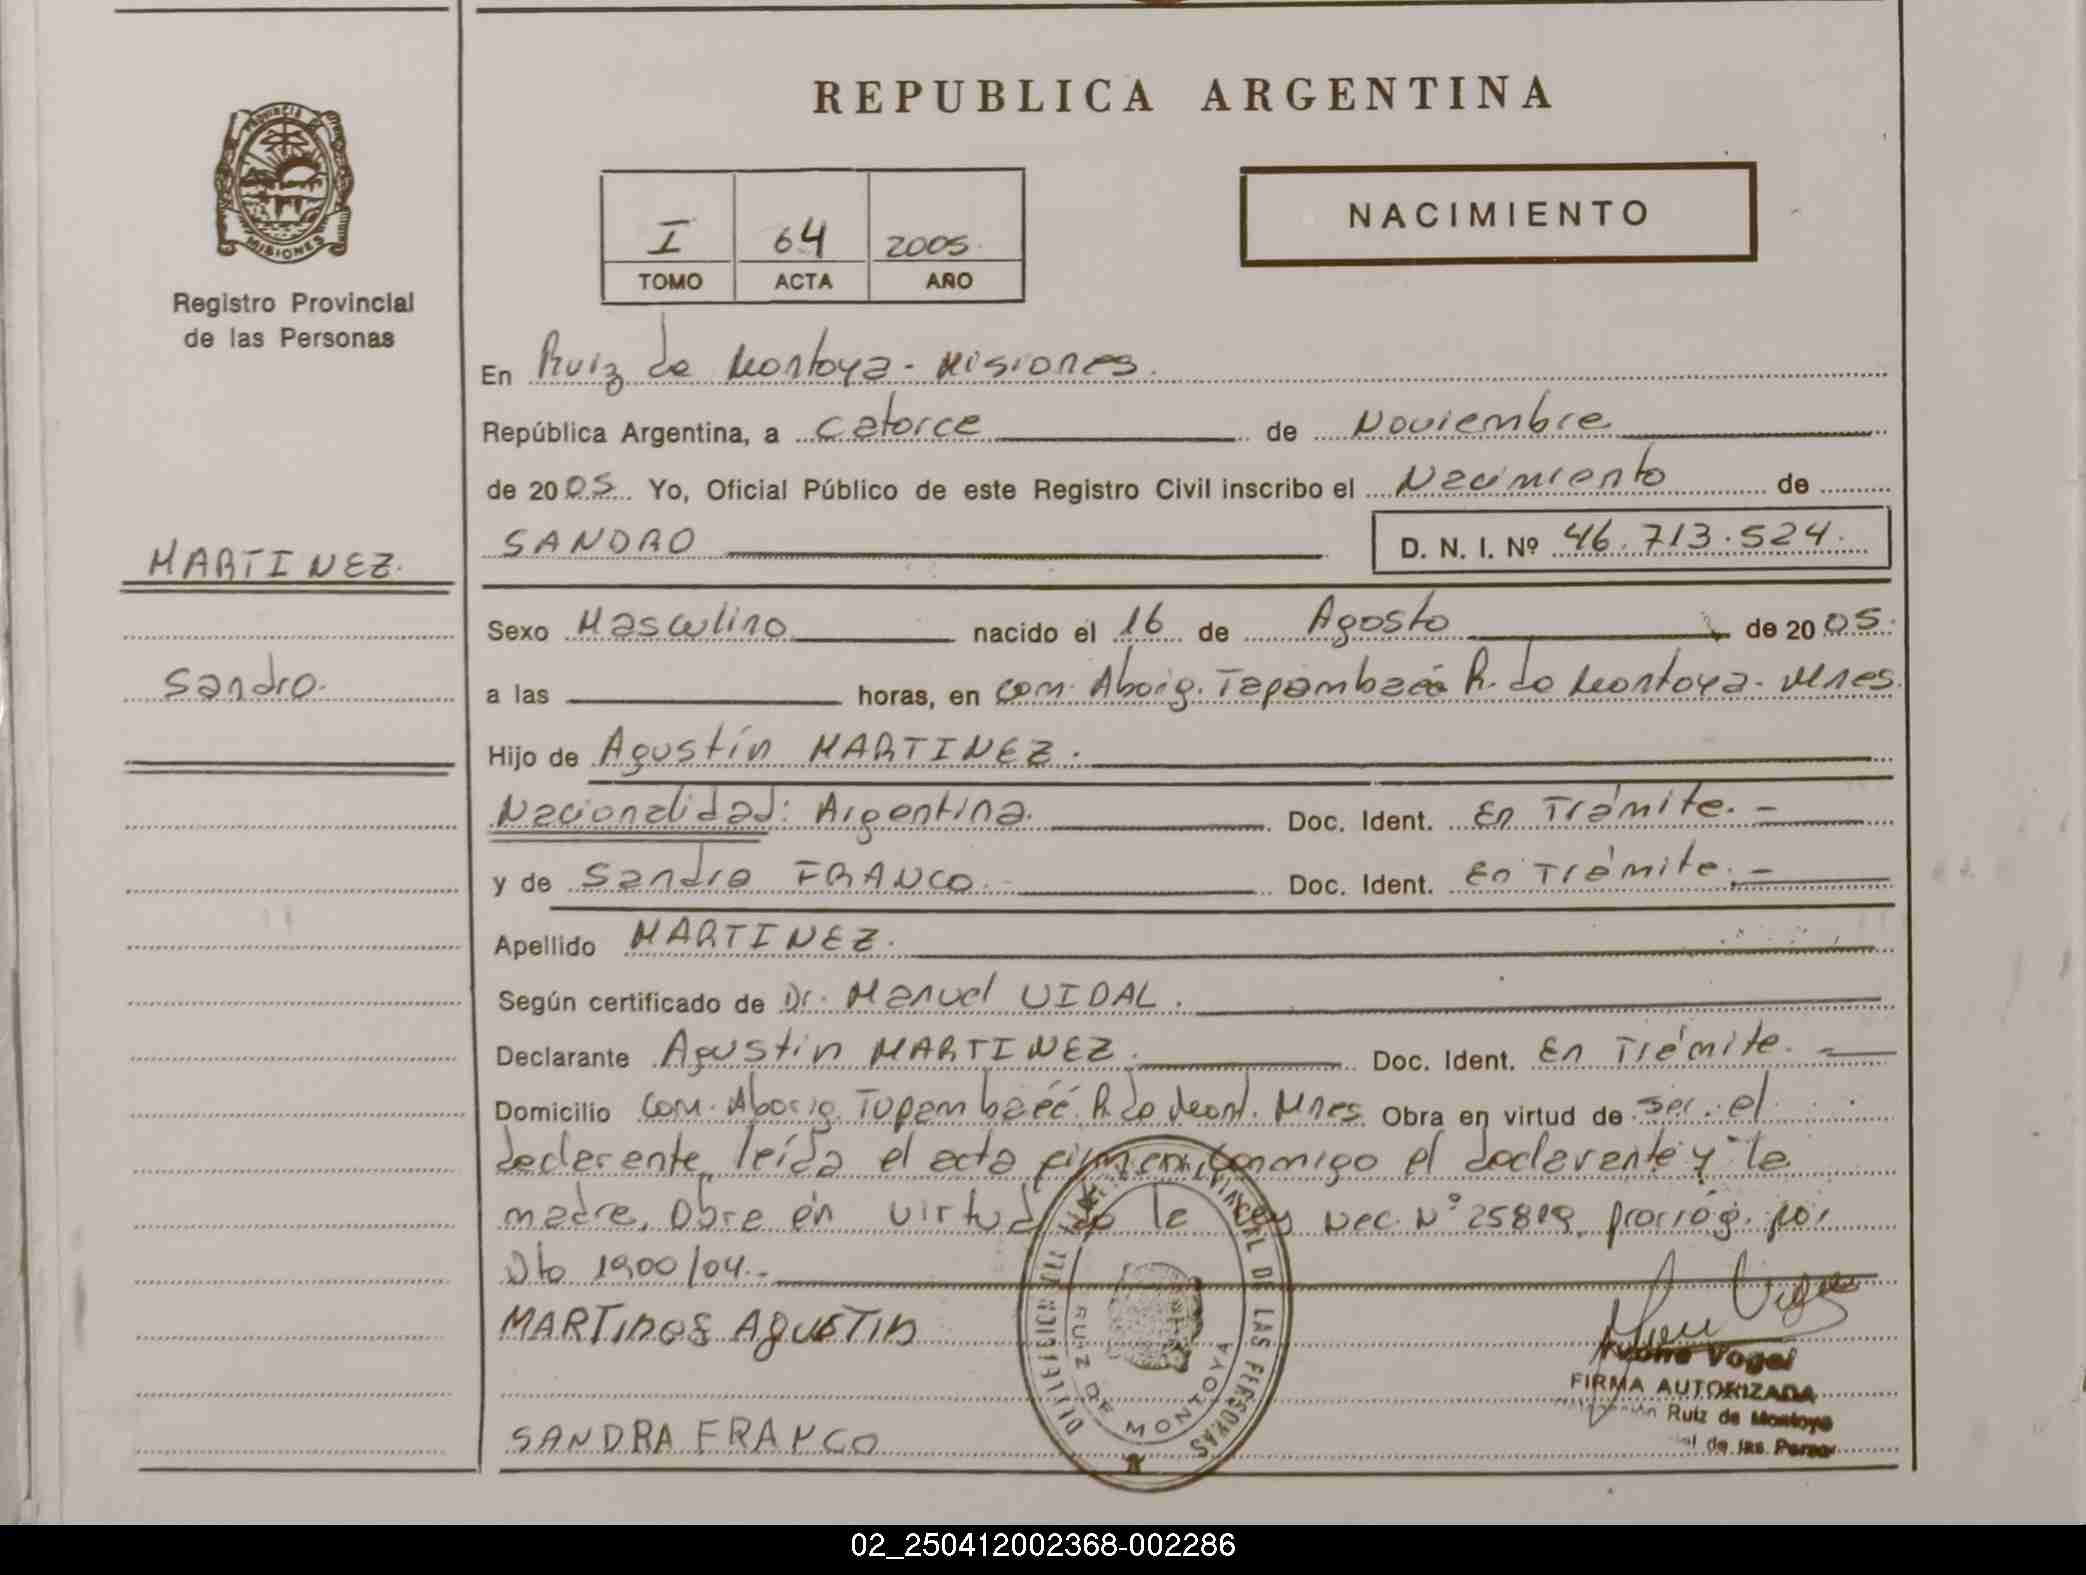 REPUBLICA ARGENTINA
PROVINCIA DE
MISIONES
Registro Provincial
de las Personas
I 64 2005
TOMO ACTA AÑO
NACIMIENTO
En Ruiz de Montoya - Misiones.
República Argentina, a catorce de Noviembre
de 2005. Yo, Oficial Público de este Registro Civil inscribo el Nacimiento de
SANDRO D. N. I. Nº 46.713.524.
MARTINEZ.
Sandro.
Sexo Masculino nacido el 16 de Agosto de 2005.
a las horas, en Com. Aborig. R. de Montoya - Mnes.
Hijo de Agustín MARTINEZ.
Nacionalidad: Argentina. Doc. Ident. En Trámite. -
y de Sandra FRANCO. Doc. Ident. En Trámite. -
Apellido MARTINEZ.
Según certificado de Dr. Manuel VIDAL.
Declarante Agustín MARTINEZ. Doc. Ident. En Trámite. -
Domicilio Com. Aborig. R. de Mont. Mnes Obra en virtud de ser el
declarante, leída el acta firman conmigo el declarante y la
madre. Obra en virtud de la Ley Nac. Nº 25819, prorróg. por
Dto 1900/04.-
MARTinos AgusTin
SANDRA FRANCO
DELEGACION DEL REGISTRO PROVINCIAL DE LAS PERSONAS
RUIZ DE MONTOYA
Ivone Vogel
FIRMA AUTORIZADA
Delegación Ruiz de Montoya
de las Person
02_250412002368-002286